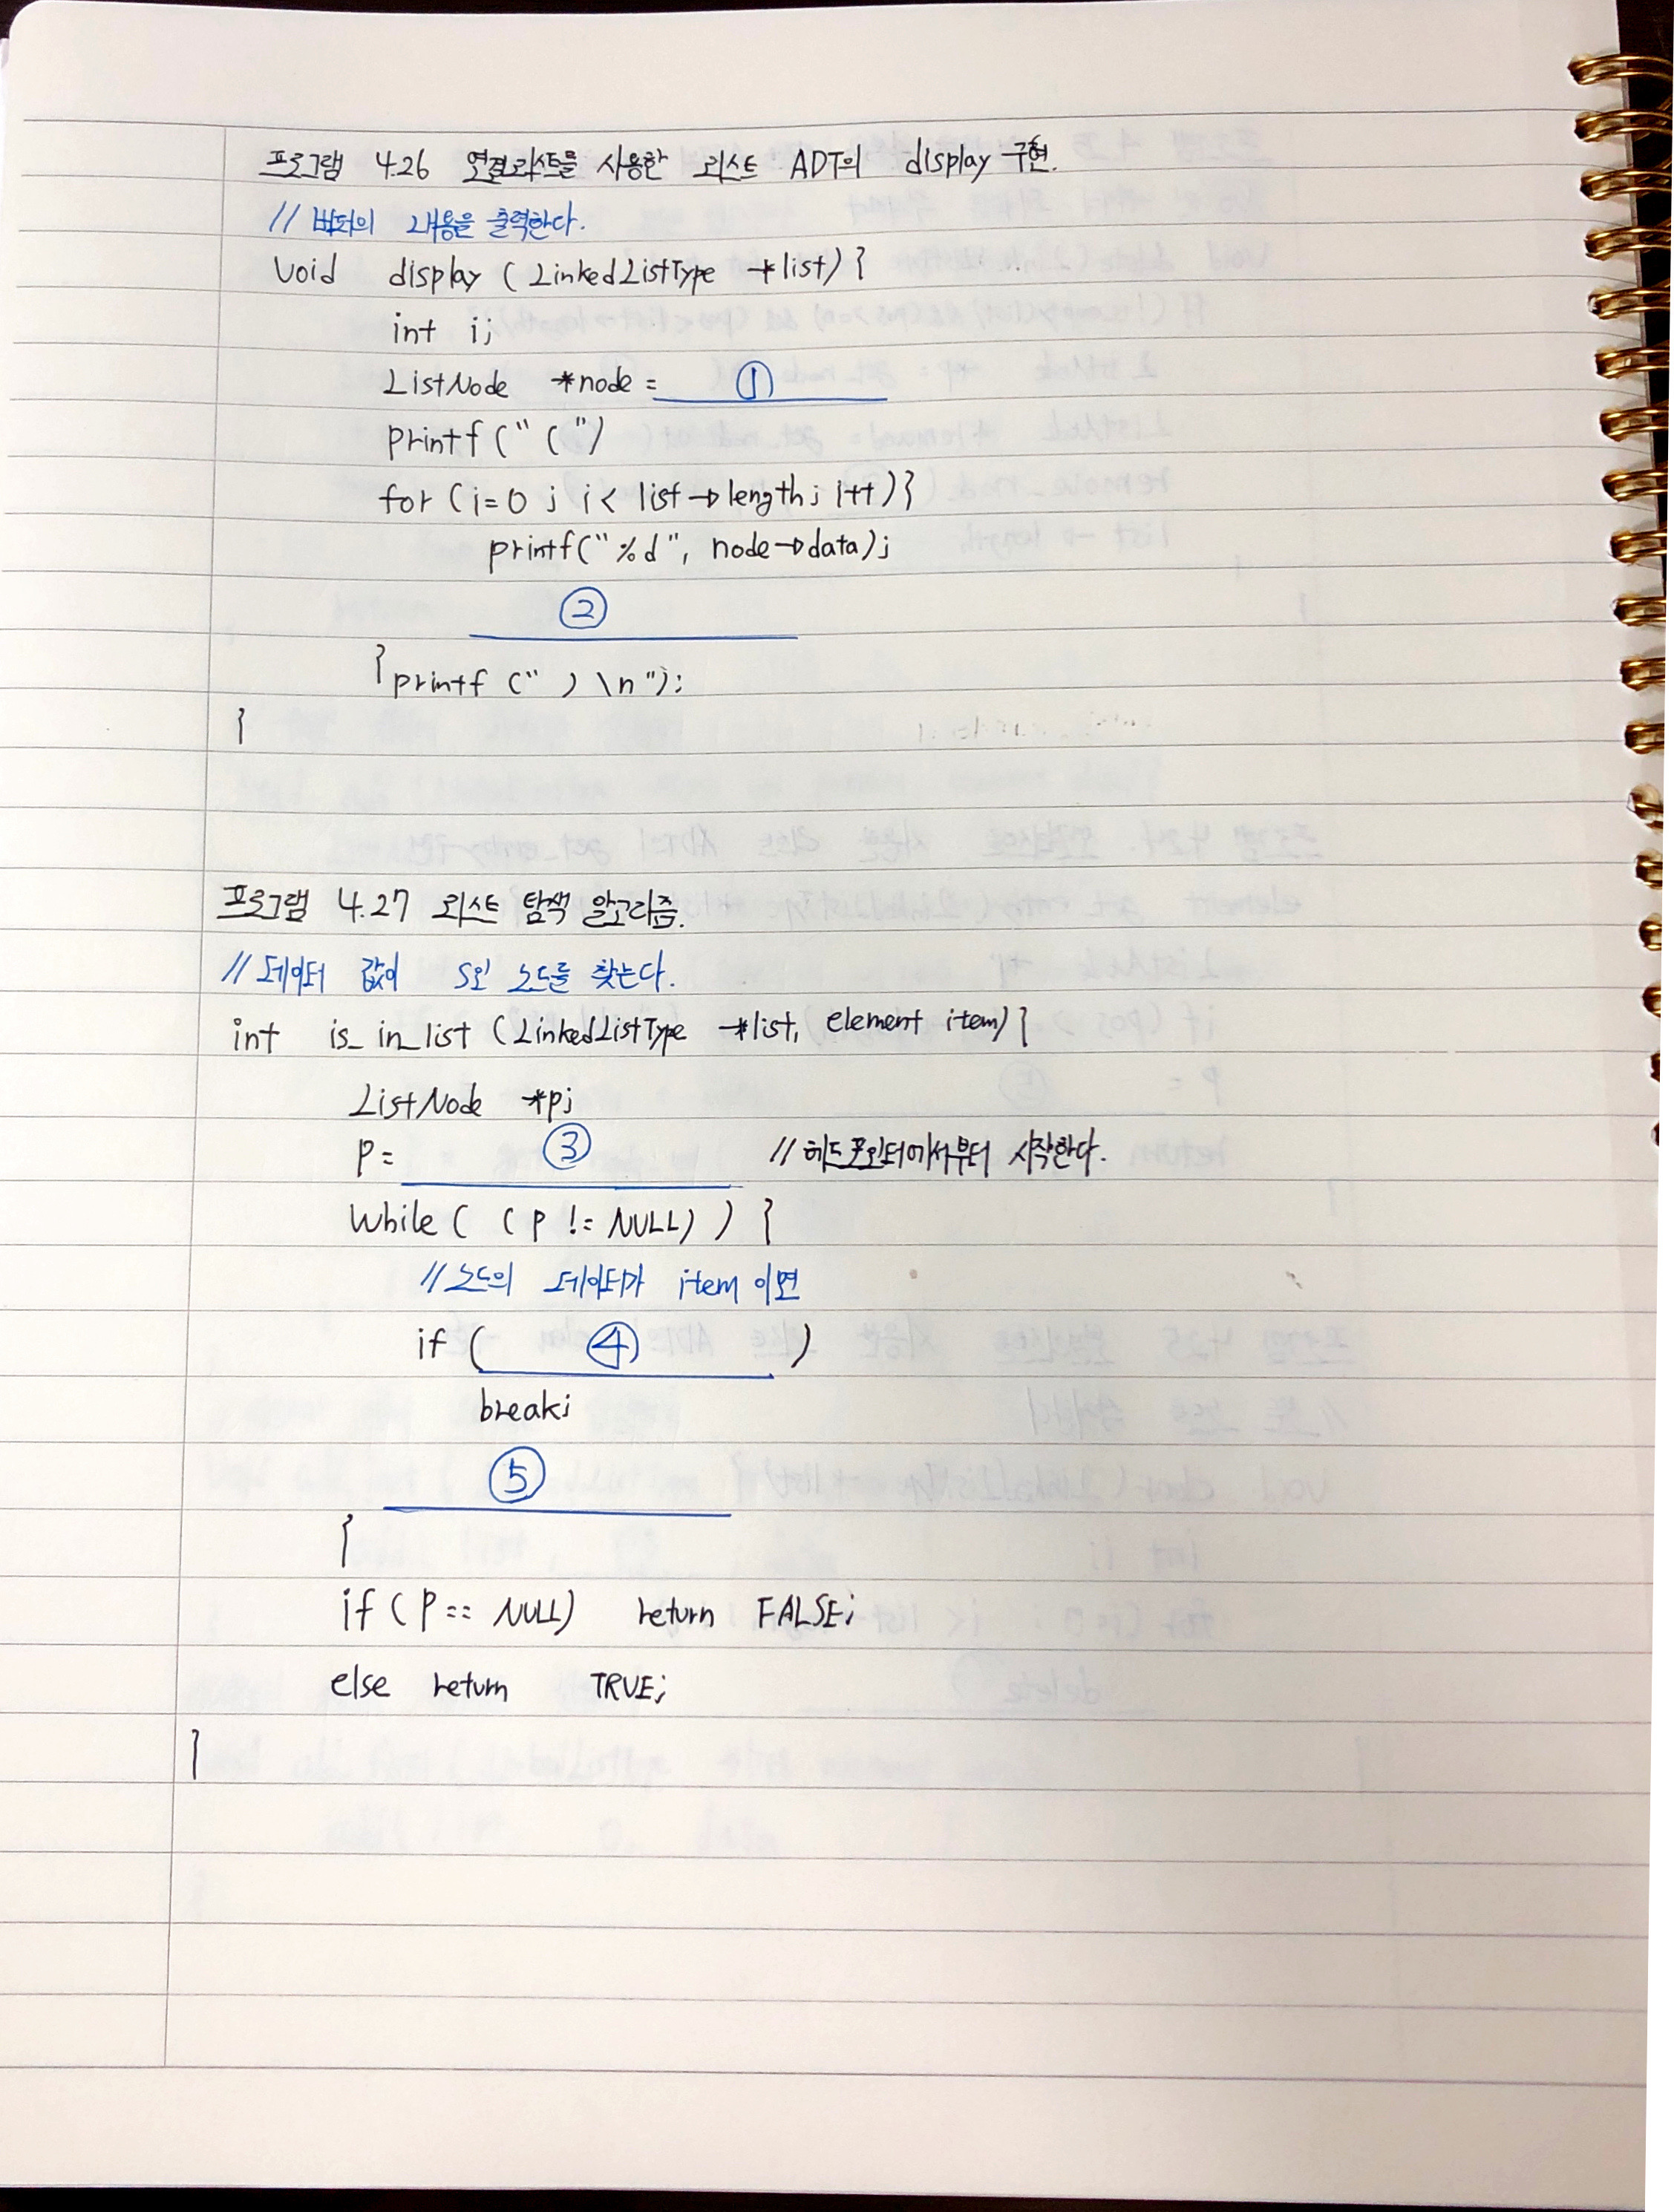 프로그램 4.26 연결리스트를 사용한 리스트 ADT의 display 구현.
// 버퍼의 내용을 출력한다.
void display (LinkedListType *list) {
int i;
ListNode *node = ①
printf (" ( ")
for (i=0 ; i < list→length; i++) }
printf(" %d ", node→data);
②
} printf (" ) \n");
}
프로그램 4.27 리스트 탐색 알고리즘.
// 데이터 값이 s인 노드를 찾는다.
int is_in_list (LinkedListType *list, element item) {
ListNode *p;
p = ③ // 헤드포인터에서부터 시작한다.
while ( ( p != NULL) ) {
// 노드의 데이터가 item 이면
if ( ④ )
break;
⑤
}
if ( p == NULL) return FALSE;
else return TRUE;
}